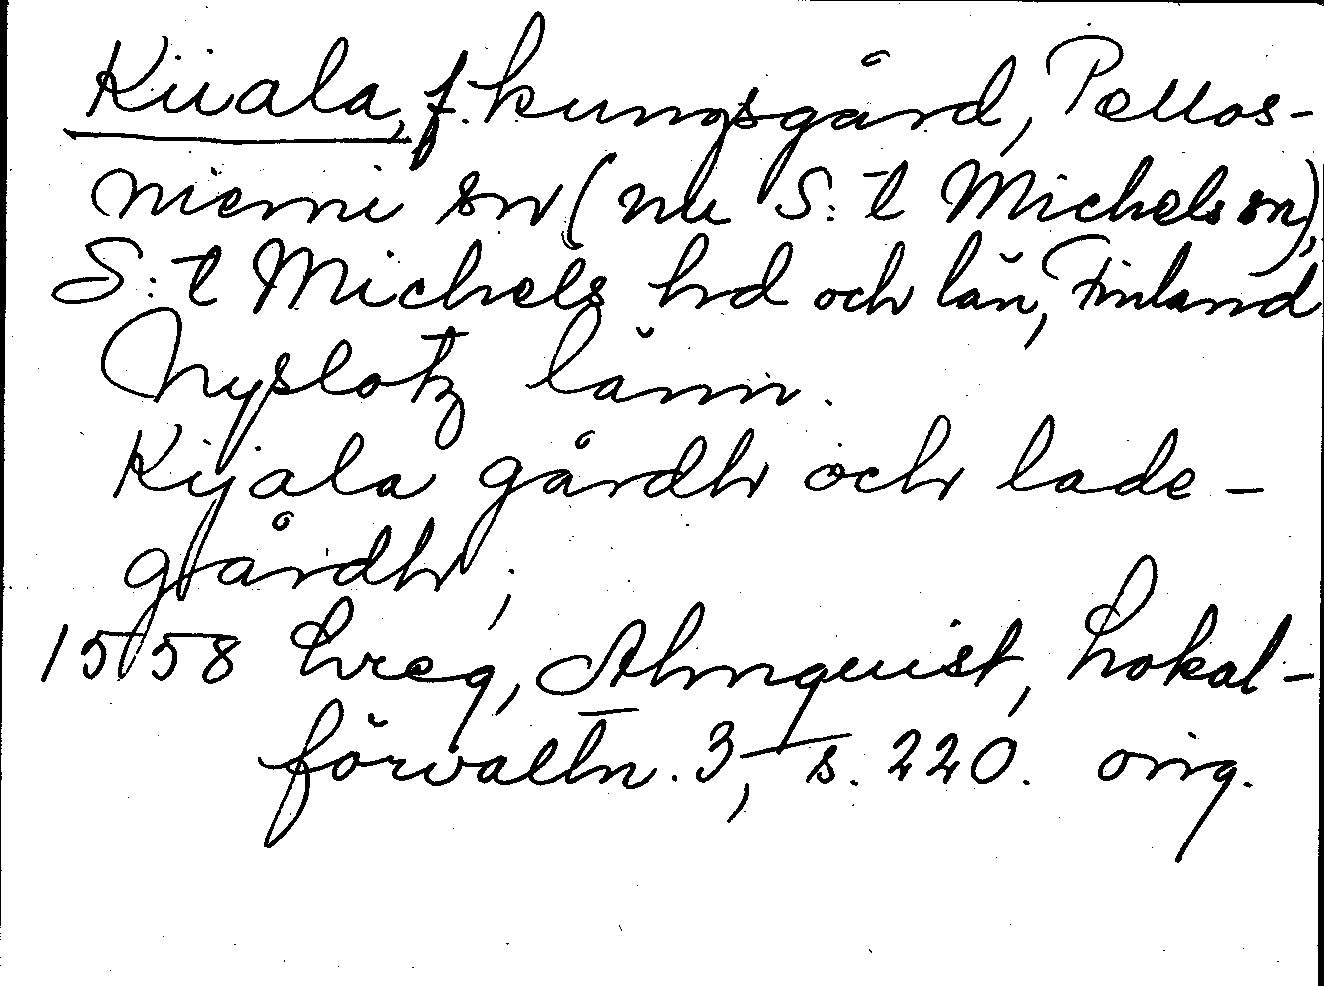 Kiiala, f. kungsgård, Pellos-
niemi sn (nu S:t Michels sn),
S:t Michels hd och län, Finland
Nyslotz länn.
Kijala gårdh och lade-
gårdh,
1558 Lreg, Almquist, Lokal-
förvaltn. 3, s. 220. orig.